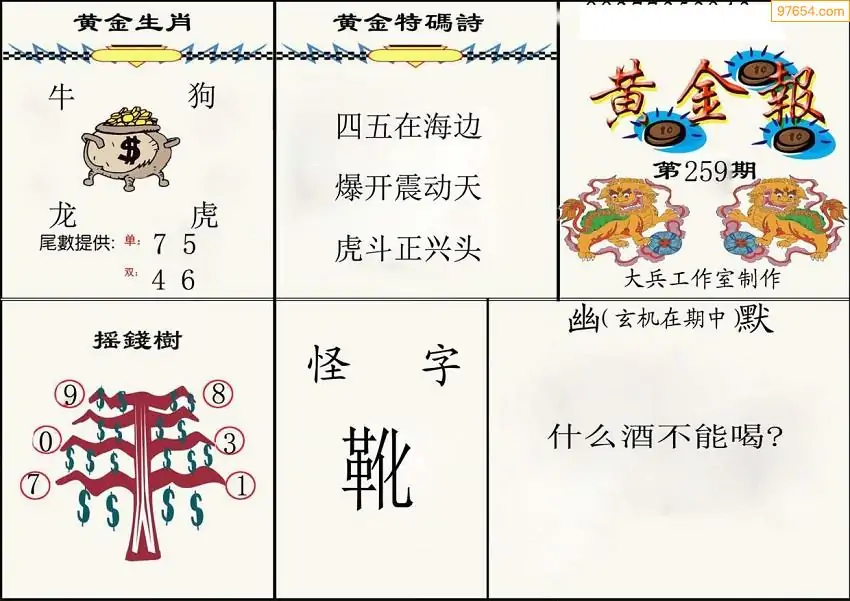 97654.com
黄金生肖
牛 狗
$
龙 虎
尾數提供: 单: 7 5
双: 4 6
黄金特碼詩
四五在海边
爆开震动天
虎斗正兴头
黄金報
第259期
大兵工作室制作
摇錢樹
9 8
0 3
7 1
怪 字
靴
幽(玄机在期中)默
什么酒不能喝?